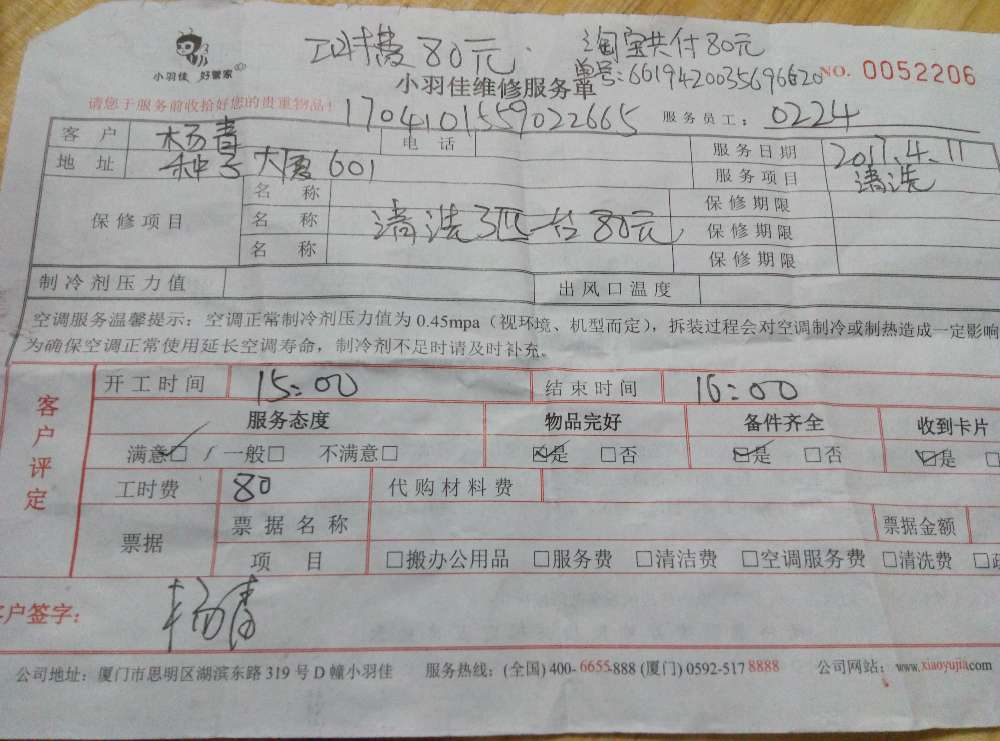 工时费80元. 淘宝共付80元
小羽佳 好管家
单号:6619420035696620 NO. 0052206
小羽佳维修服务单
请您于服务前收拾好您的贵重物品!
1704101559022665 服务员工: 0224
客户 杨青 电话 服务日期 2017.4.11
地址 种子大厦601 服务项目 清洗
保修项目 名称 保修期限
名称 清洗3匹一台80元 保修期限
名称 保修期限
制冷剂压力值 出风口温度
空调服务温馨提示: 空调正常制冷剂压力值为0.45mpa(视环境、机型而定),拆装过程会对空调制冷或制热造成一定影响
为确保空调正常使用延长空调寿命,制冷剂不足时请及时补充。
客户评定
开工时间 15:00 结束时间 16:00
服务态度 物品完好 备件齐全 收到卡片
满意☑ / 一般□ 不满意□ ☑是 □否 ☑是 □否 ☑是 □
工时费 80 代购材料费
票据 票据名称 票据金额
项目 □搬办公用品 □服务费 □清洁费 □空调服务费 □清洗费 □
客户签字: 杨青
公司地址: 厦门市思明区湖滨东路319号D幢小羽佳 服务热线: (全国) 400-6655-888 (厦门) 0592-517 8888 公司网站: www.xiaoyujia.com